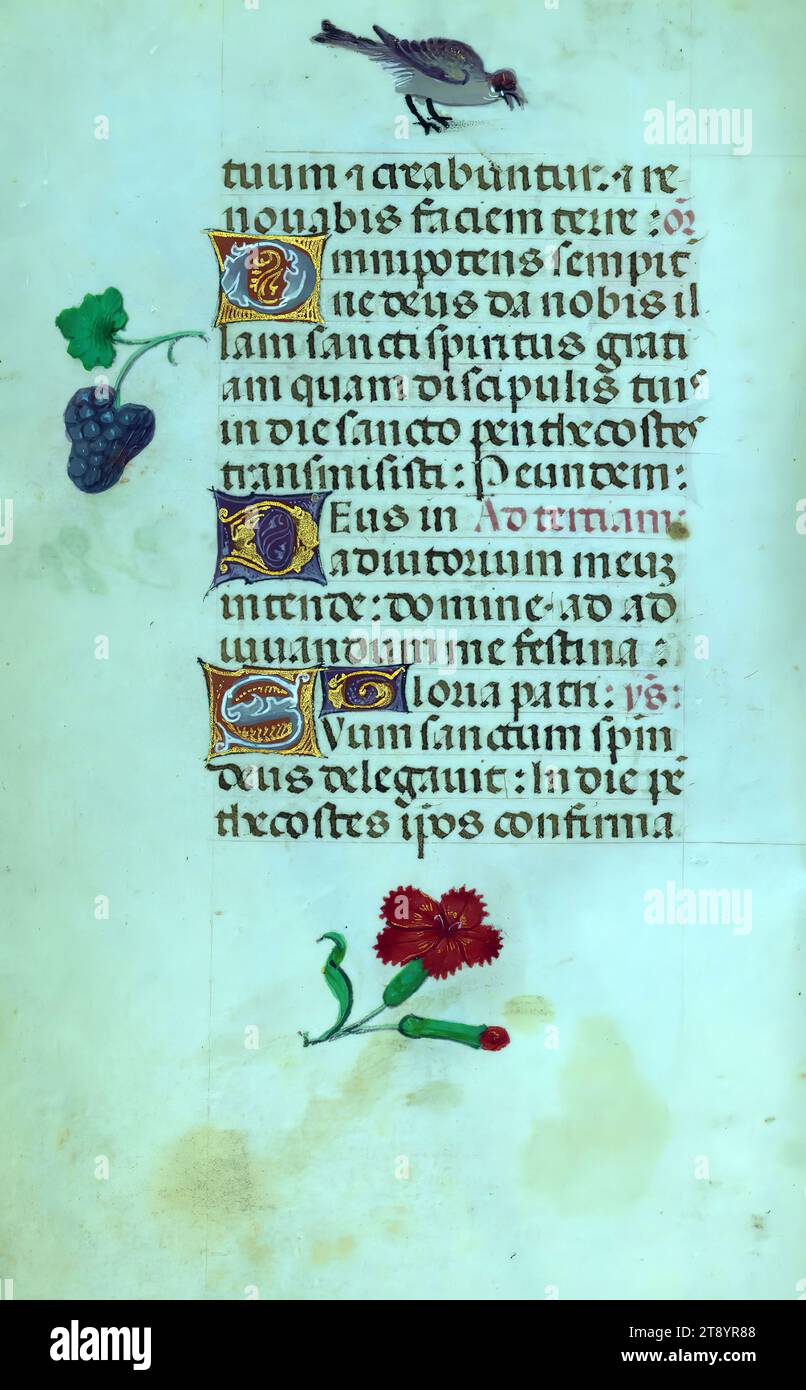 tuum ⁊ creabuntur. ⁊ re
novabis faciem terre : or̃
Omnipotens sempit̃
ne deus da nobis il
lam sancti spiritus grati
am quam discipulis tuis
in die sancto penthecostes
transmisisti : P eundem :
DEus in Ad tertiam :
adiutorium meuz
intende : domine ad ad
iuvandum me festina :
Gloria patri : ys̃ :
SVum sanctum spiri
deus delegavit : In die pe
thecostes ip̃os confirma
alamy
alamy
alamy
Image ID: 2T8YR88
www.alamy.com